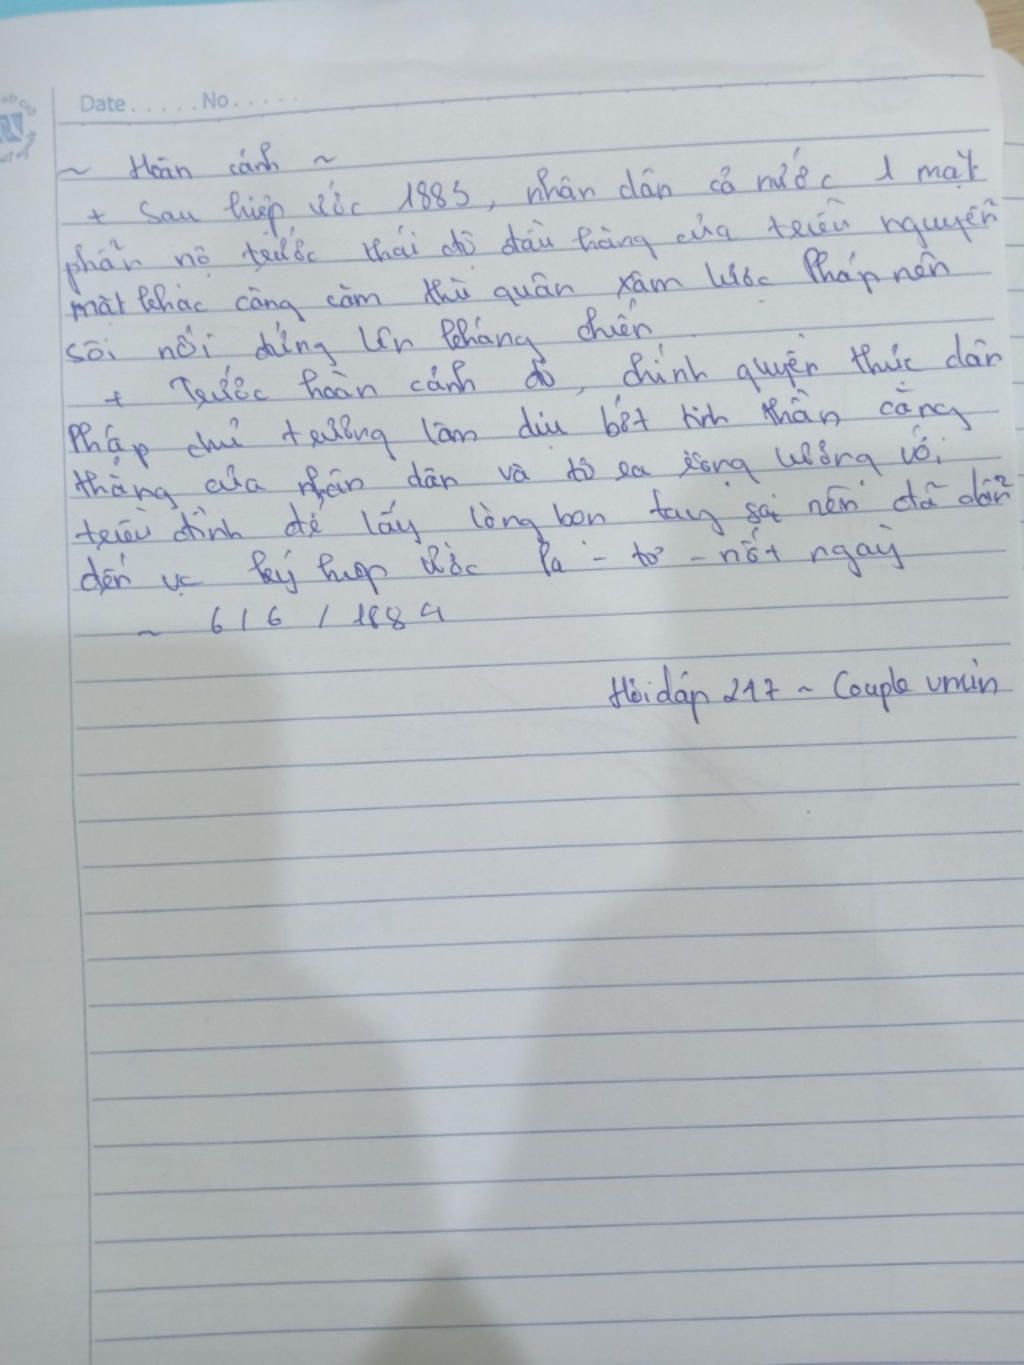 Date.....No.....
~ Hoàn cảnh ~
+ Sau hiệp ước 1883, nhân dân cả nước 1 mặt
phẫn nộ trước thái độ đầu hàng của triều nguyễn
mặt khác căng căm thù quân xâm lược Pháp nên
sôi nổi đứng lên kháng chiến
+ Trước hoàn cảnh đó, chính quyền thực dân
Pháp chủ trương làm dịu bớt tinh thần căng
thẳng của nhân dân và tỏ ra nhượng với
triều đình để lấy lòng bọn tay sai nên đã dẫn
đến vc ký hiệp ước Pa - tơ - nốt ngày
~ 6 / 6 / 1884
Hỏi đáp 247 ~ Couple vmin